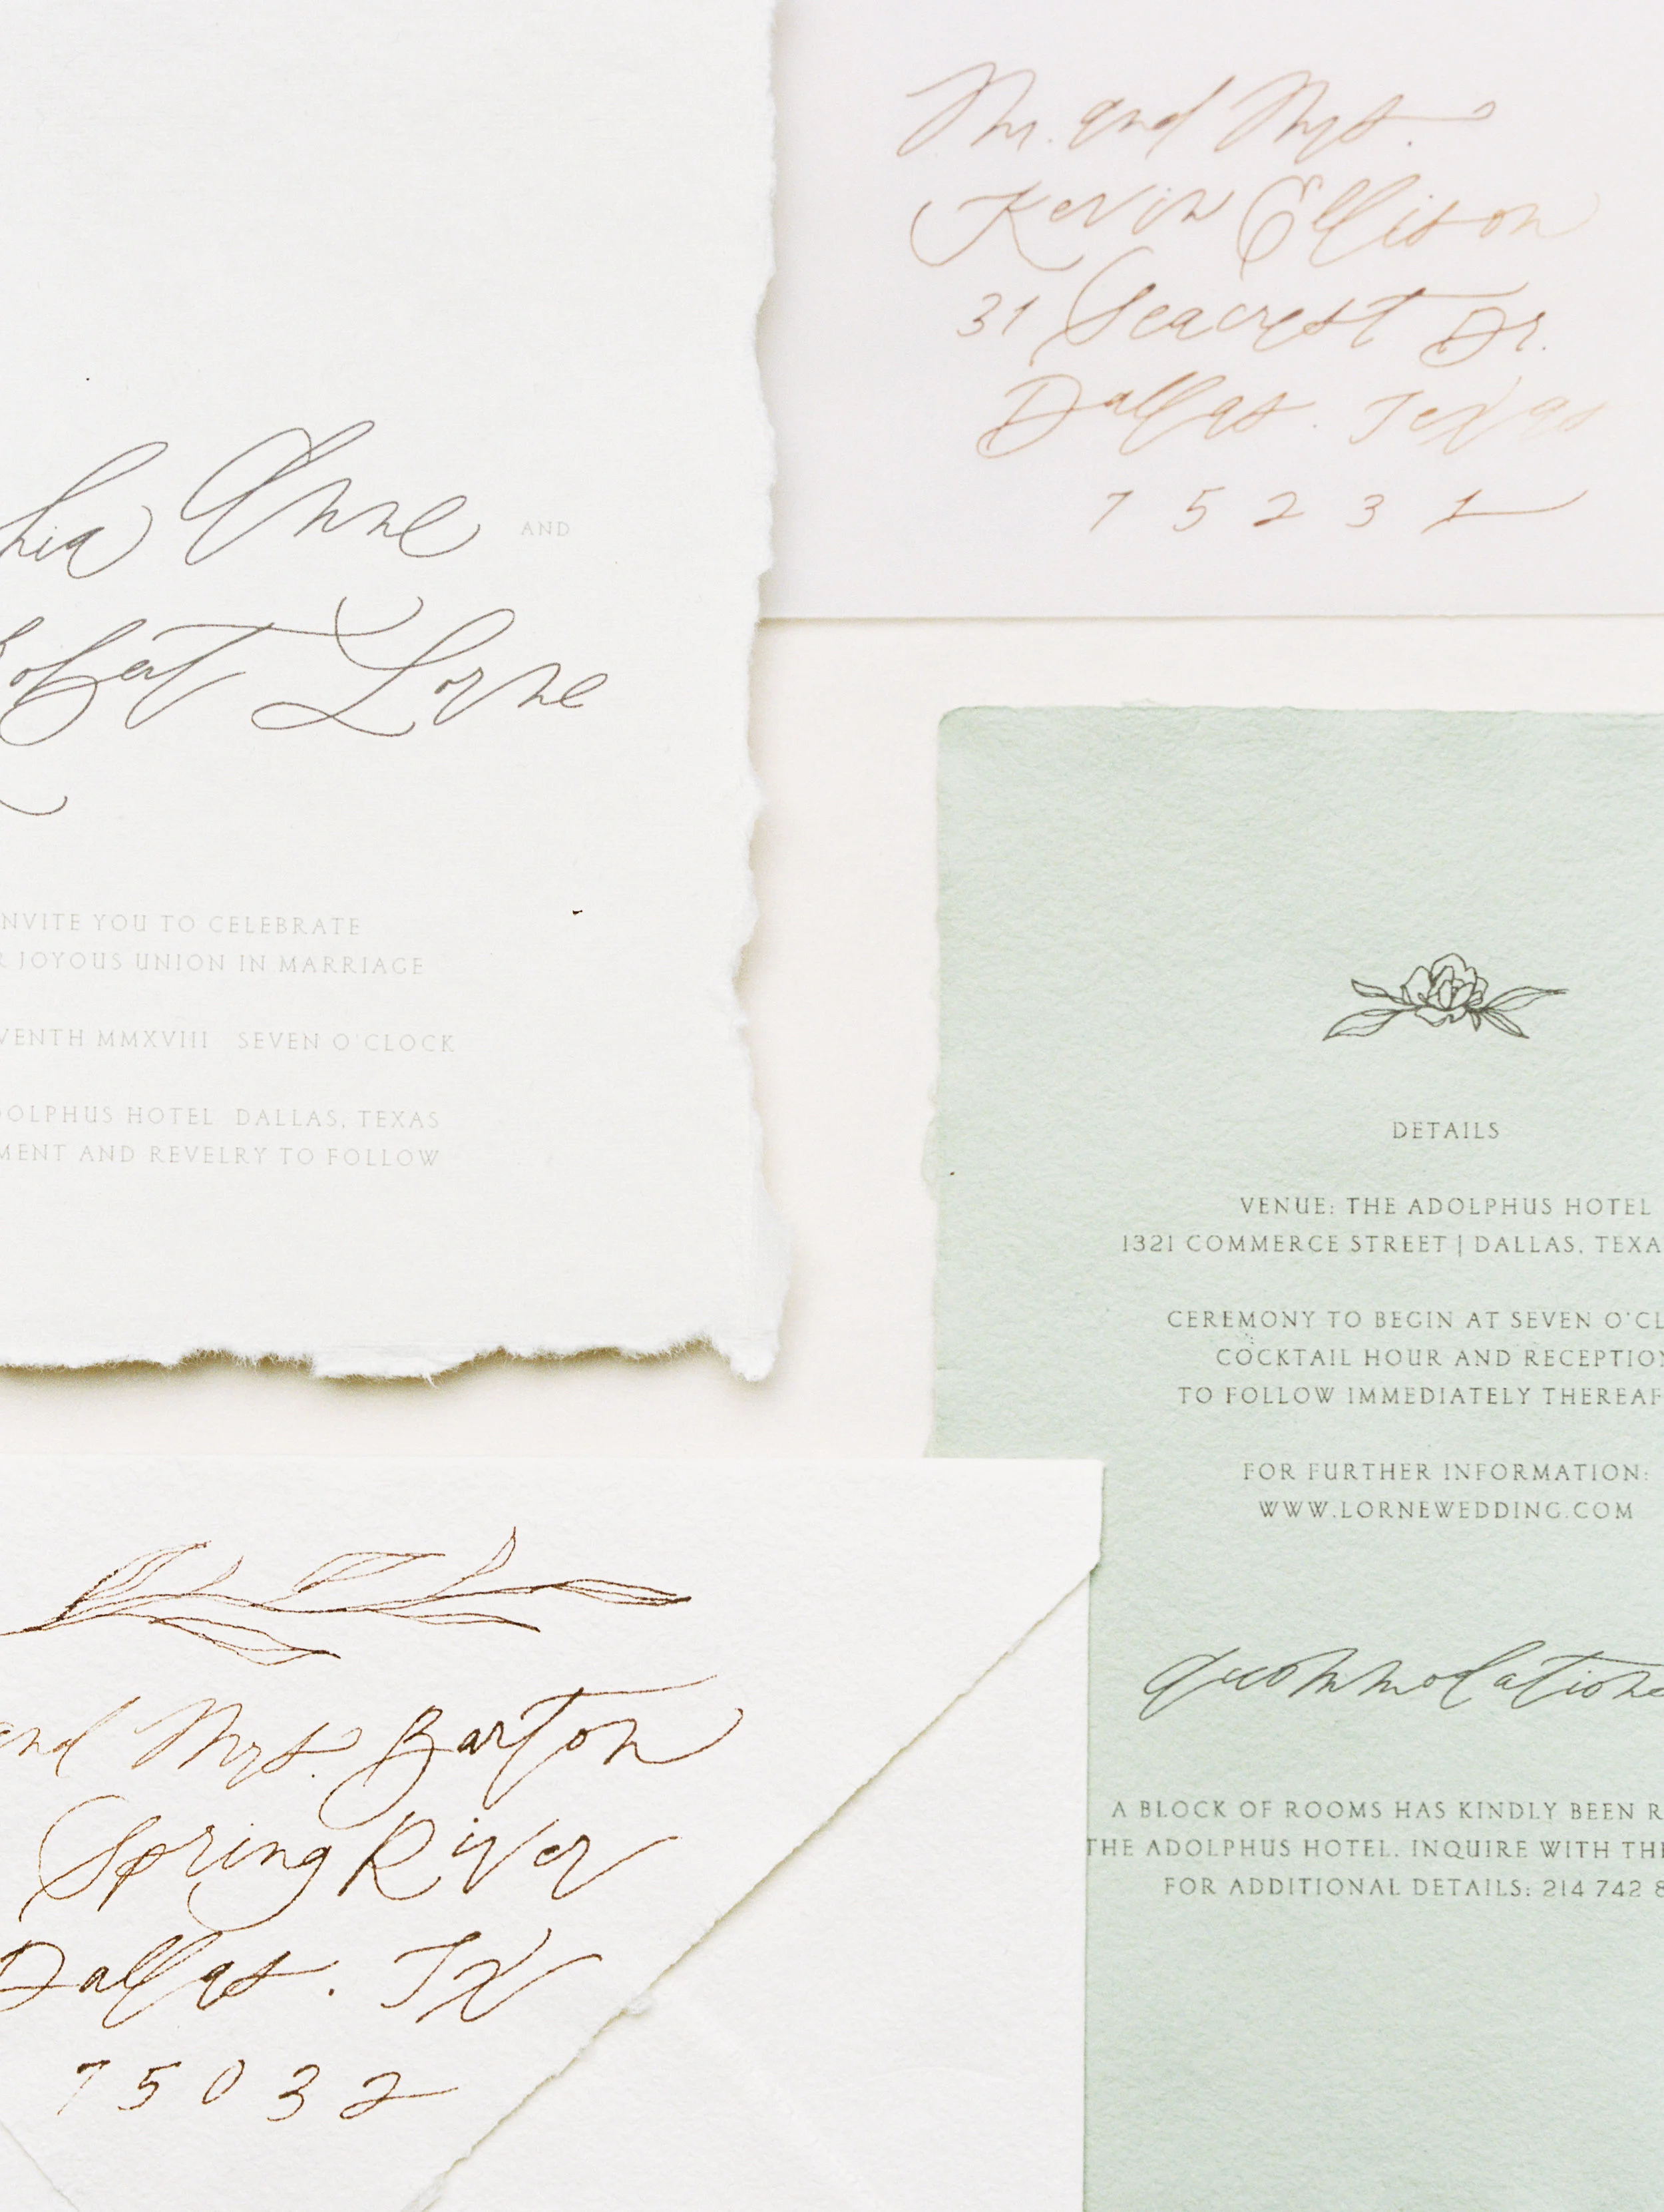 hia Anne AND
Robert Lorne
NVITE YOU TO CELEBRATE
R JOYOUS UNION IN MARRIAGE
VENTH MMXVIII SEVEN O'CLOCK
DOLPHUS HOTEL DALLAS, TEXAS
MENT AND REVELRY TO FOLLOW
Mr. and Mrs.
Kevin Ellison
31 Seacrest Dr.
Dallas. Texas
75231
DETAILS
VENUE: THE ADOLPHUS HOTEL
1321 COMMERCE STREET | DALLAS, TEXA
CEREMONY TO BEGIN AT SEVEN O'CL
COCKTAIL HOUR AND RECEPTION
TO FOLLOW IMMEDIATELY THEREAF
FOR FURTHER INFORMATION:
WWW.LORNEWEDDING.COM
accommodations
A BLOCK OF ROOMS HAS KINDLY BEEN R
THE ADOLPHUS HOTEL. INQUIRE WITH THE
FOR ADDITIONAL DETAILS: 214 742 8
and Mrs. Barton
Spring River
Dallas. TX
75032